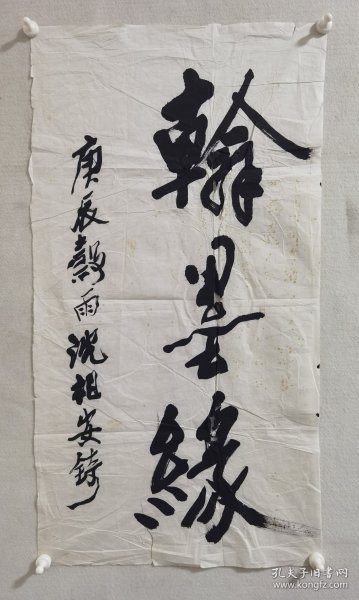 翰墨缘
庚辰穀雨沈祖安錡
孔夫子旧书网
www.kongfz.com